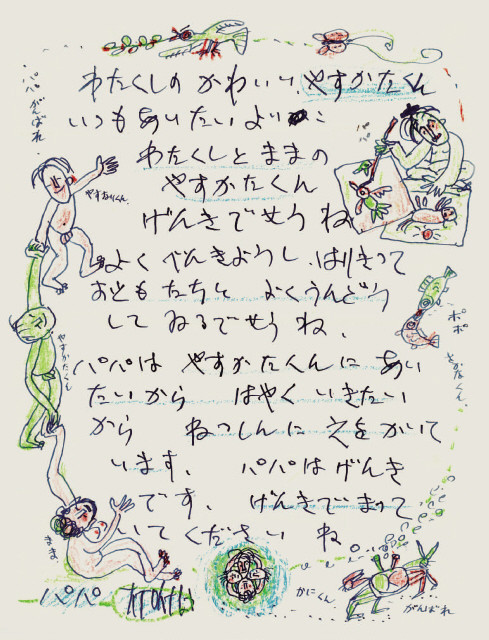 わたくしの かわいい やすかたくん
いつもあいたいよ
わたくしとままの
やすかたくん
げんきでせうね
よくべんきょうし、はりきって
おともたちと よくうんどう
してゐるでせうね、
パパは やすかたくんに あい
たいから はやく いきたい
から ねつしんに えをかいて
います、 パパはげんき
です、げんきでまって
いてくださいね
パパ
パパ
がんばれ
パパ
やすかたくん
まま
ポポ
さかなくん
かにくん
がんばれ